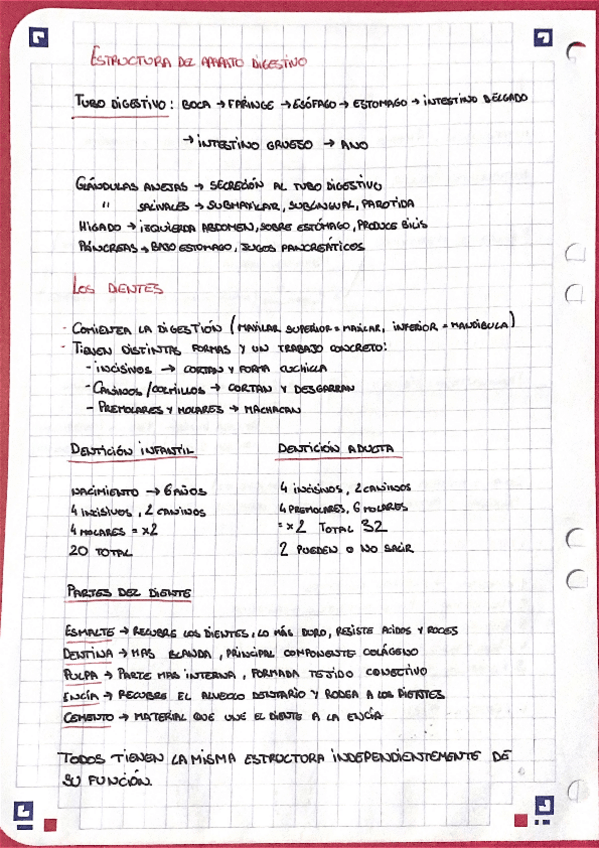 ESTRUCTURA DEL APARATO DIGESTIVO
TUBO DIGESTIVO: BOCA → FARINGE → ESÓFAGO → ESTOMAGO → INTESTINO DELGADO
→ INTESTINO GRUESO → ANO
GLÁNDULAS ANEJAS → SECRECIÓN AL TUBO DIGESTIVO
" SALIVALES → SUBMAXILAR, SUBLINGUAL, PAROTIDA
HIGADO → IZQUIERDA ABDOMEN, SOBRE ESTÓMAGO, PRODUCE BILIS
PÁNCREAS → BAJO ESTOMAGO, JUGOS PANCREÁTICOS
LOS DIENTES
- COMIENZA LA DIGESTIÓN (MAXILAR SUPERIOR = MAXILAR, INFERIOR = MANDIBULA)
- TIENEN DISTINTAS FORMAS Y UN TRABAJO CONCRETO:
- INCISIVOS → CORTAN Y FORMA CUCHILLA
- CANINOS/COLMILLOS → CORTAN Y DESGARRAN
- PREMOLARES Y MOLARES → MACHACAN
DENTICIÓN INFANTIL
NACIMIENTO → 6 AÑOS
4 INCISIVOS, 2 CANINOS
4 MOLARES = x2
20 TOTAL
DENTICIÓN ADULTA
4 INCISIVOS, 2 CANINOS
4 PREMOLARES, 6 MOLARES
= x2 TOTAL 32
2 PUEDEN O NO SALIR
PARTES DEL DIENTE
ESMALTE → RECUBRE LOS DIENTES, LO MÁS DURO, RESISTE ACIDOS Y ROCES
DENTINA → MAS BLANDA, PRINCIPAL COMPONENTE COLÁGENO
PULPA → PARTE MAS INTERNA, FORMADA TEJIDO CONECTIVO
ENCÍA → RECUBRE EL ALVEOLO DENTARIO Y RODEA A LOS DIENTES
CEMENTO → MATERIAL QUE UNE EL DIENTE A LA ENCÍA
TODOS TIENEN LA MISMA ESTRUCTURA INDEPENDIENTEMENTE DE
SU FUNCIÓN.